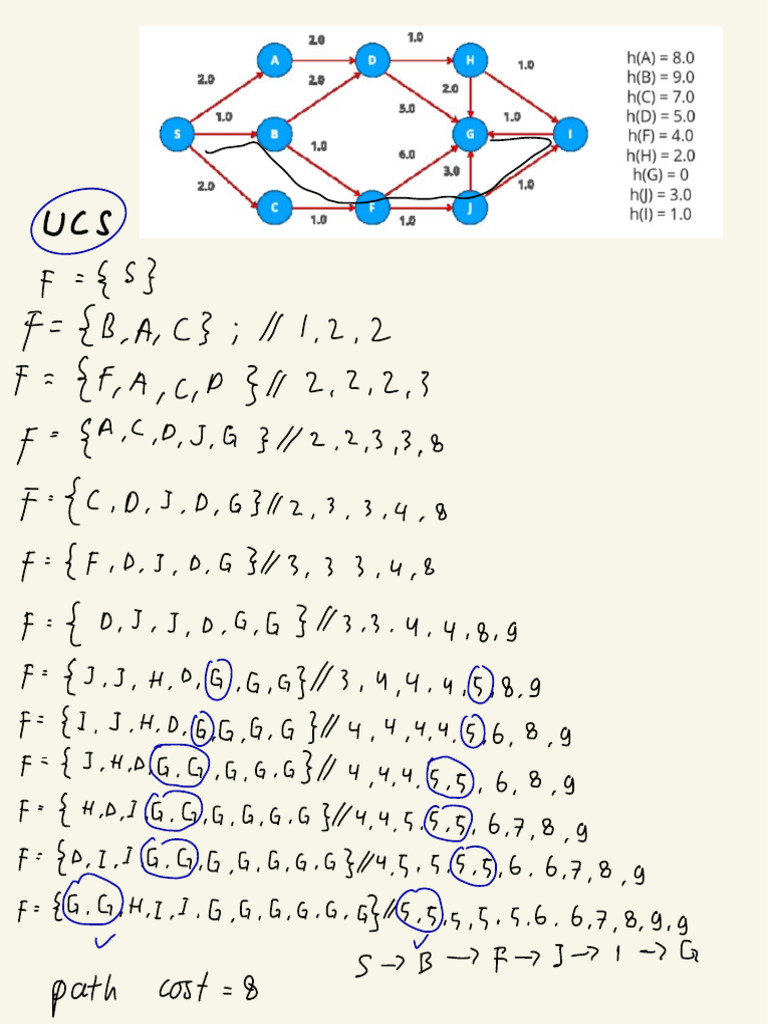 2.0 1.0
A D H
2.0 2.0 2.0 1.0
5.0
1.0 1.0
S B G I
1.0 6.0
2.0 3.0 1.0
C F J
1.0 1.0
h(A) = 8.0
h(B) = 9.0
h(C) = 7.0
h(D) = 5.0
h(F) = 4.0
h(H) = 2.0
h(G) = 0
h(J) = 3.0
h(I) = 1.0
UCS
F = { S }
F = { B, A, C } ; // 1, 2, 2
F = { F, A, C, D } // 2, 2, 2, 3
F = { A, C, D, J, G } // 2, 2, 3, 3, 8
F = { C, D, J, D, G } // 2, 3, 3, 4, 8
F = { F, D, J, D, G } // 3, 3 3, 4, 8
F = { D, J, J, D, G, G } // 3, 3, 4, 4, 8, 9
F = { J, J, H, D, G, G, G } // 3, 4, 4, 4, 5, 8, 9
F = { I, J, H, D, G, G, G, G } // 4, 4, 4, 4, 5, 6, 8, 9
F = { J, H, D, G, G, G, G, G } // 4, 4, 4, 5, 5, 6, 8, 9
F = { H, D, I G, G, G, G, G, G } // 4, 4, 5, 5, 5, 6, 7, 8, 9
F = { D, I, I G, G, G, G, G, G, G } // 4, 5, 5, 5, 5, 6, 6, 7, 8, 9
F = { G, G, H, I, I, G, G, G, G, G, G } // 5, 5, 5, 5, 5, 6, 6, 7, 8, 9, 9
S → B → F → J → I → G
path cost = 8